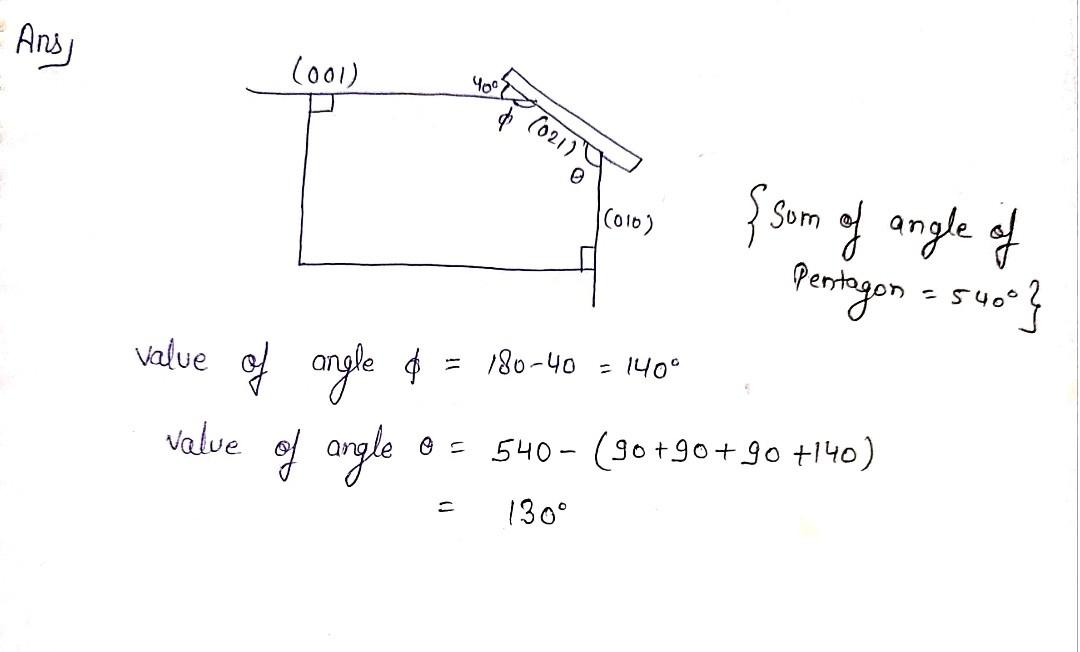 Ans,
(001)
40°
φ (021)
θ
(010)
{Sum of angle of
Pentagon = 540°}
value of angle φ = 180-40 = 140°
value of angle θ = 540 - (90+90+90+140)
= 130°